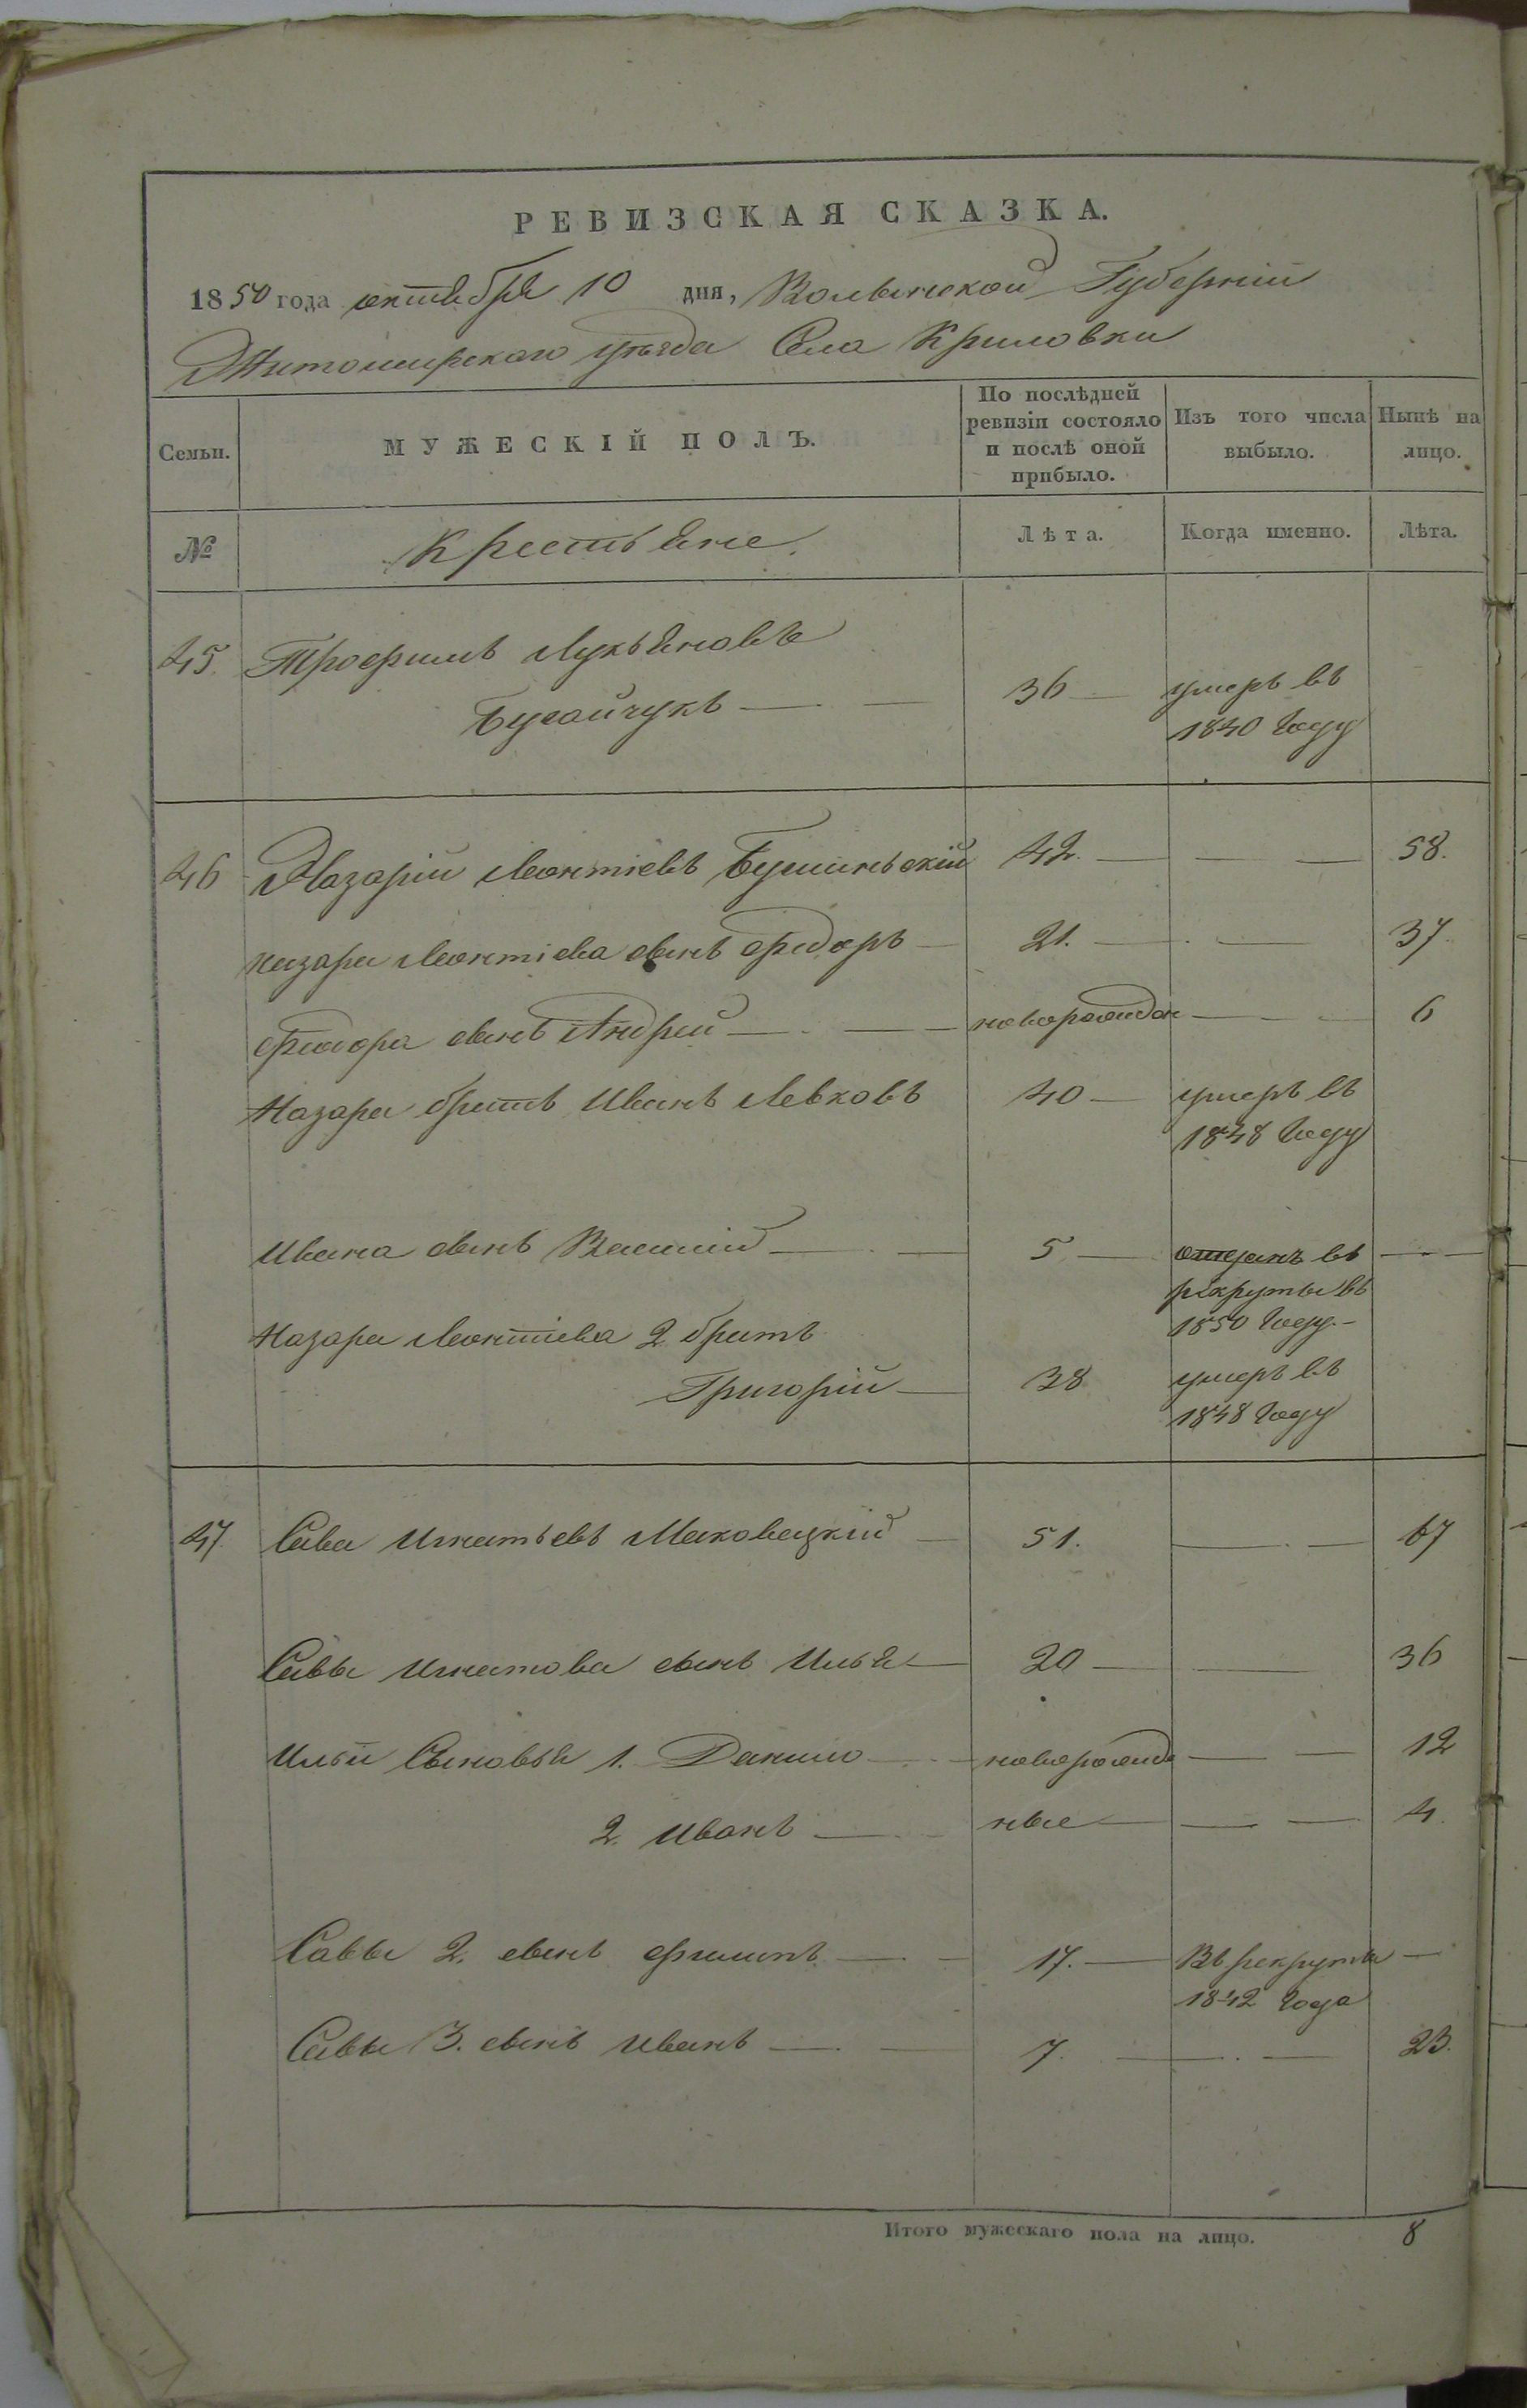 РЕВИЗСКАЯ СКАЗКА.
1850 года октября 10 дня, Волынской Губерніи
Житомирскаго уѣзда Села Криловки
Семьи. МУЖЕСКІЙ ПОЛЪ. По послѣдней ревизіи состояло и послѣ оной прибыло. Изъ того числа выбыло. Нынѣ на лицо.
№ Крестьяне. Лѣта. Когда именно. Лѣта.
45. Трофимъ Лукьяновъ
Бугайчукъ — 36 — умеръ въ
1840 году
46 Назарій Леонтіевъ 42. — — 58.
назара Леонтіева сынъ Фидоръ — 21. — — 37.
Фидора сынъ Андрей — новорожден — — 6
Назара братъ Иванъ Левковъ 40 — умеръ въ
1848 году
Ивана сынъ Василій — 5 — отданъ въ —
рекруты въ
1850 году. —
Назара Леонтіева 2 братъ
Григорій — 38 умеръ въ
1848 году
47. Сава Игнатьевъ Маковецкій — 51. — 67
Саввы Игнатова сынъ Илья — 20 — — 36
Ильи Сыновья 1. Данило — новорожде — — 12
2. Иванъ — ные — — 4.
Саввы 2. сынъ Филипъ — 17. — Въ рекруты —
1842 года
Саввы 3. сынъ Иванъ — 7. — — 23.
Итого мужескаго пола на лицо. 8